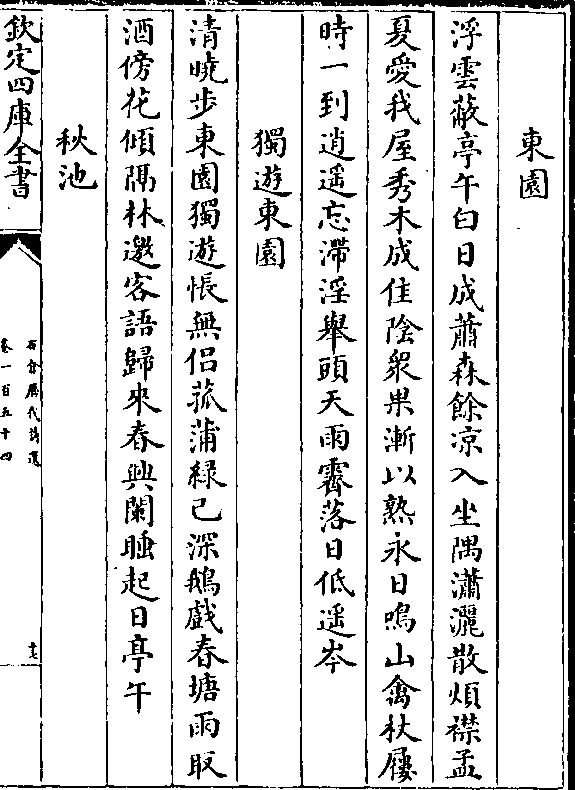 東園
浮雲蔽亭午白日成蕭森餘凉入坐隅瀟灑散煩襟孟
夏愛我屋秀木成佳陰衆果漸以熟永日鳴山禽杖屨
時一到逍遥忘滯淫舉頭天雨霽落日低遥岑
獨遊東園
清曉步東園獨遊悵無侣菰蒲緑已深鵝戲春塘雨取
酒傍花傾隔林邀客語歸來春興闌睡起日亭午
秋池
欽定四庫全書
石倉歷代詩選
卷一百五十四
十七